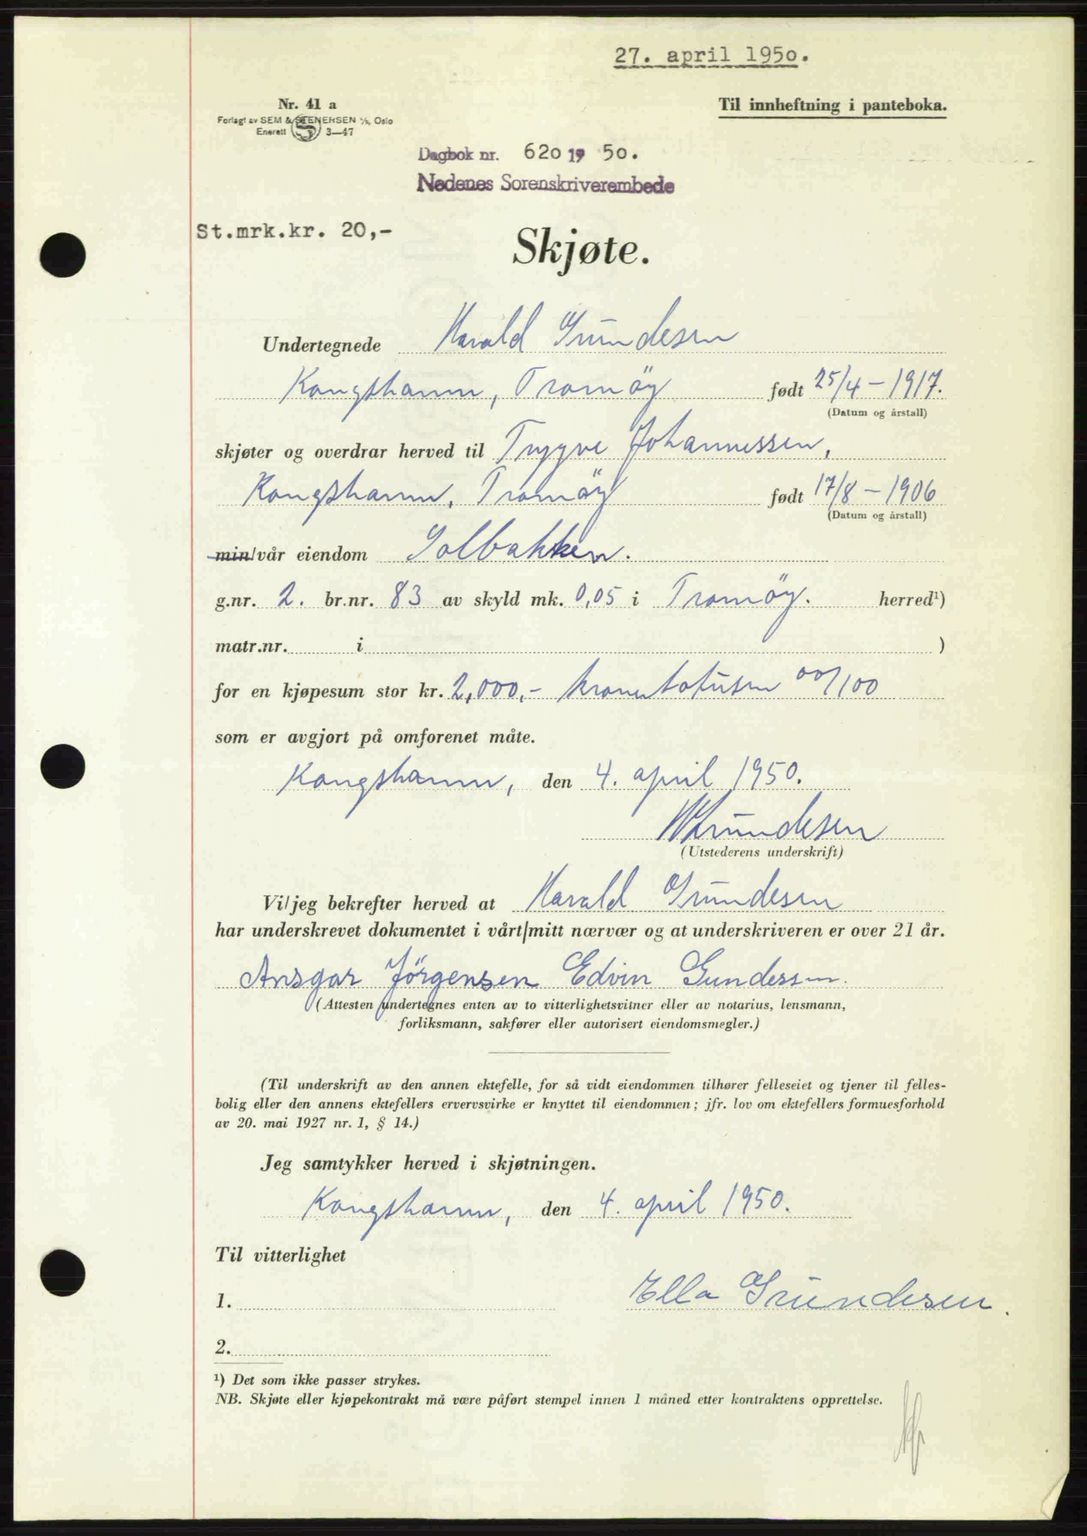 27. april 1950.
Nr. 41 a
Forlagt av SEM & STENERSEN A/S, Oslo
Enerett 3—47
Til innheftning i panteboka.
Dagbok nr. 620 19 50.
Nedenes Sorenskriverembede
St.mrk.kr. 20,-
Skjøte.
Undertegnede Harald Gundesen
Kongshamn, Tromöy født 25/4 - 1917.
(Datum og årstall)
skjøter og overdrar herved til Trygve Johannessen,
Kongshamn, Tromöy født 17/8 - 1906
(Datum og årstall)
min/vår eiendom Solbakken.
g.nr. 2. br.nr. 83 av skyld mk. 0,05 i Tromöy. herred¹)
matr.nr. i )
for en kjøpesum stor kr. 2,000,- kronertotusen 00/100
som er avgjort på omforenet måte.
Kongshamn, den 4. april 1950.
Gundesen
(Utstederens underskrift)
Vi/jeg bekrefter herved at Harald Gundesen
har underskrevet dokumentet i vårt/mitt nærvær og at underskriveren er over 21 år.
Ansgar Jörgensen Edvin Gundessen.
(Attesten undertegnes enten av to vitterlighetsvitner eller av notarius, lensmann,
forliksmann, sakfører eller autorisert eiendomsmegler.)
(Til underskrift av den annen ektefelle, for så vidt eiendommen tilhører felleseiet og tjener til felles-
bolig eller den annens ektefellers ervervsvirke er knyttet til eiendommen; jfr. lov om ektefellers formuesforhold
av 20. mai 1927 nr. 1, § 14.)
Jeg samtykker herved i skjøtningen.
Kongshamn, den 4. april 1950.
Til vitterlighet
1. Ella Gundesen.
2.
¹) Det som ikke passer strykes.
NB. Skjøte eller kjøpekontrakt må være påført stempel innen 1 måned etter kontraktens opprettelse.